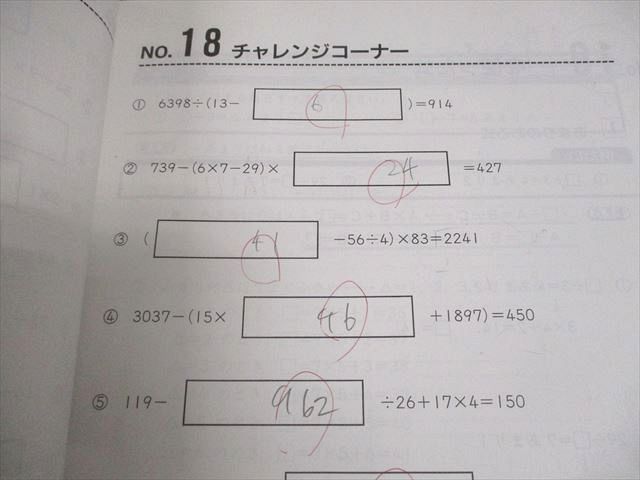 NO. 18 チャレンジコーナー
① 6398÷(13− 6 )=914
② 739−(6×7−29)× 24 =427
③ ( 41 −56÷4)×83=2241
④ 3037−(15× 46 +1897)=450
⑤ 119− 962 ÷26+17×4=150